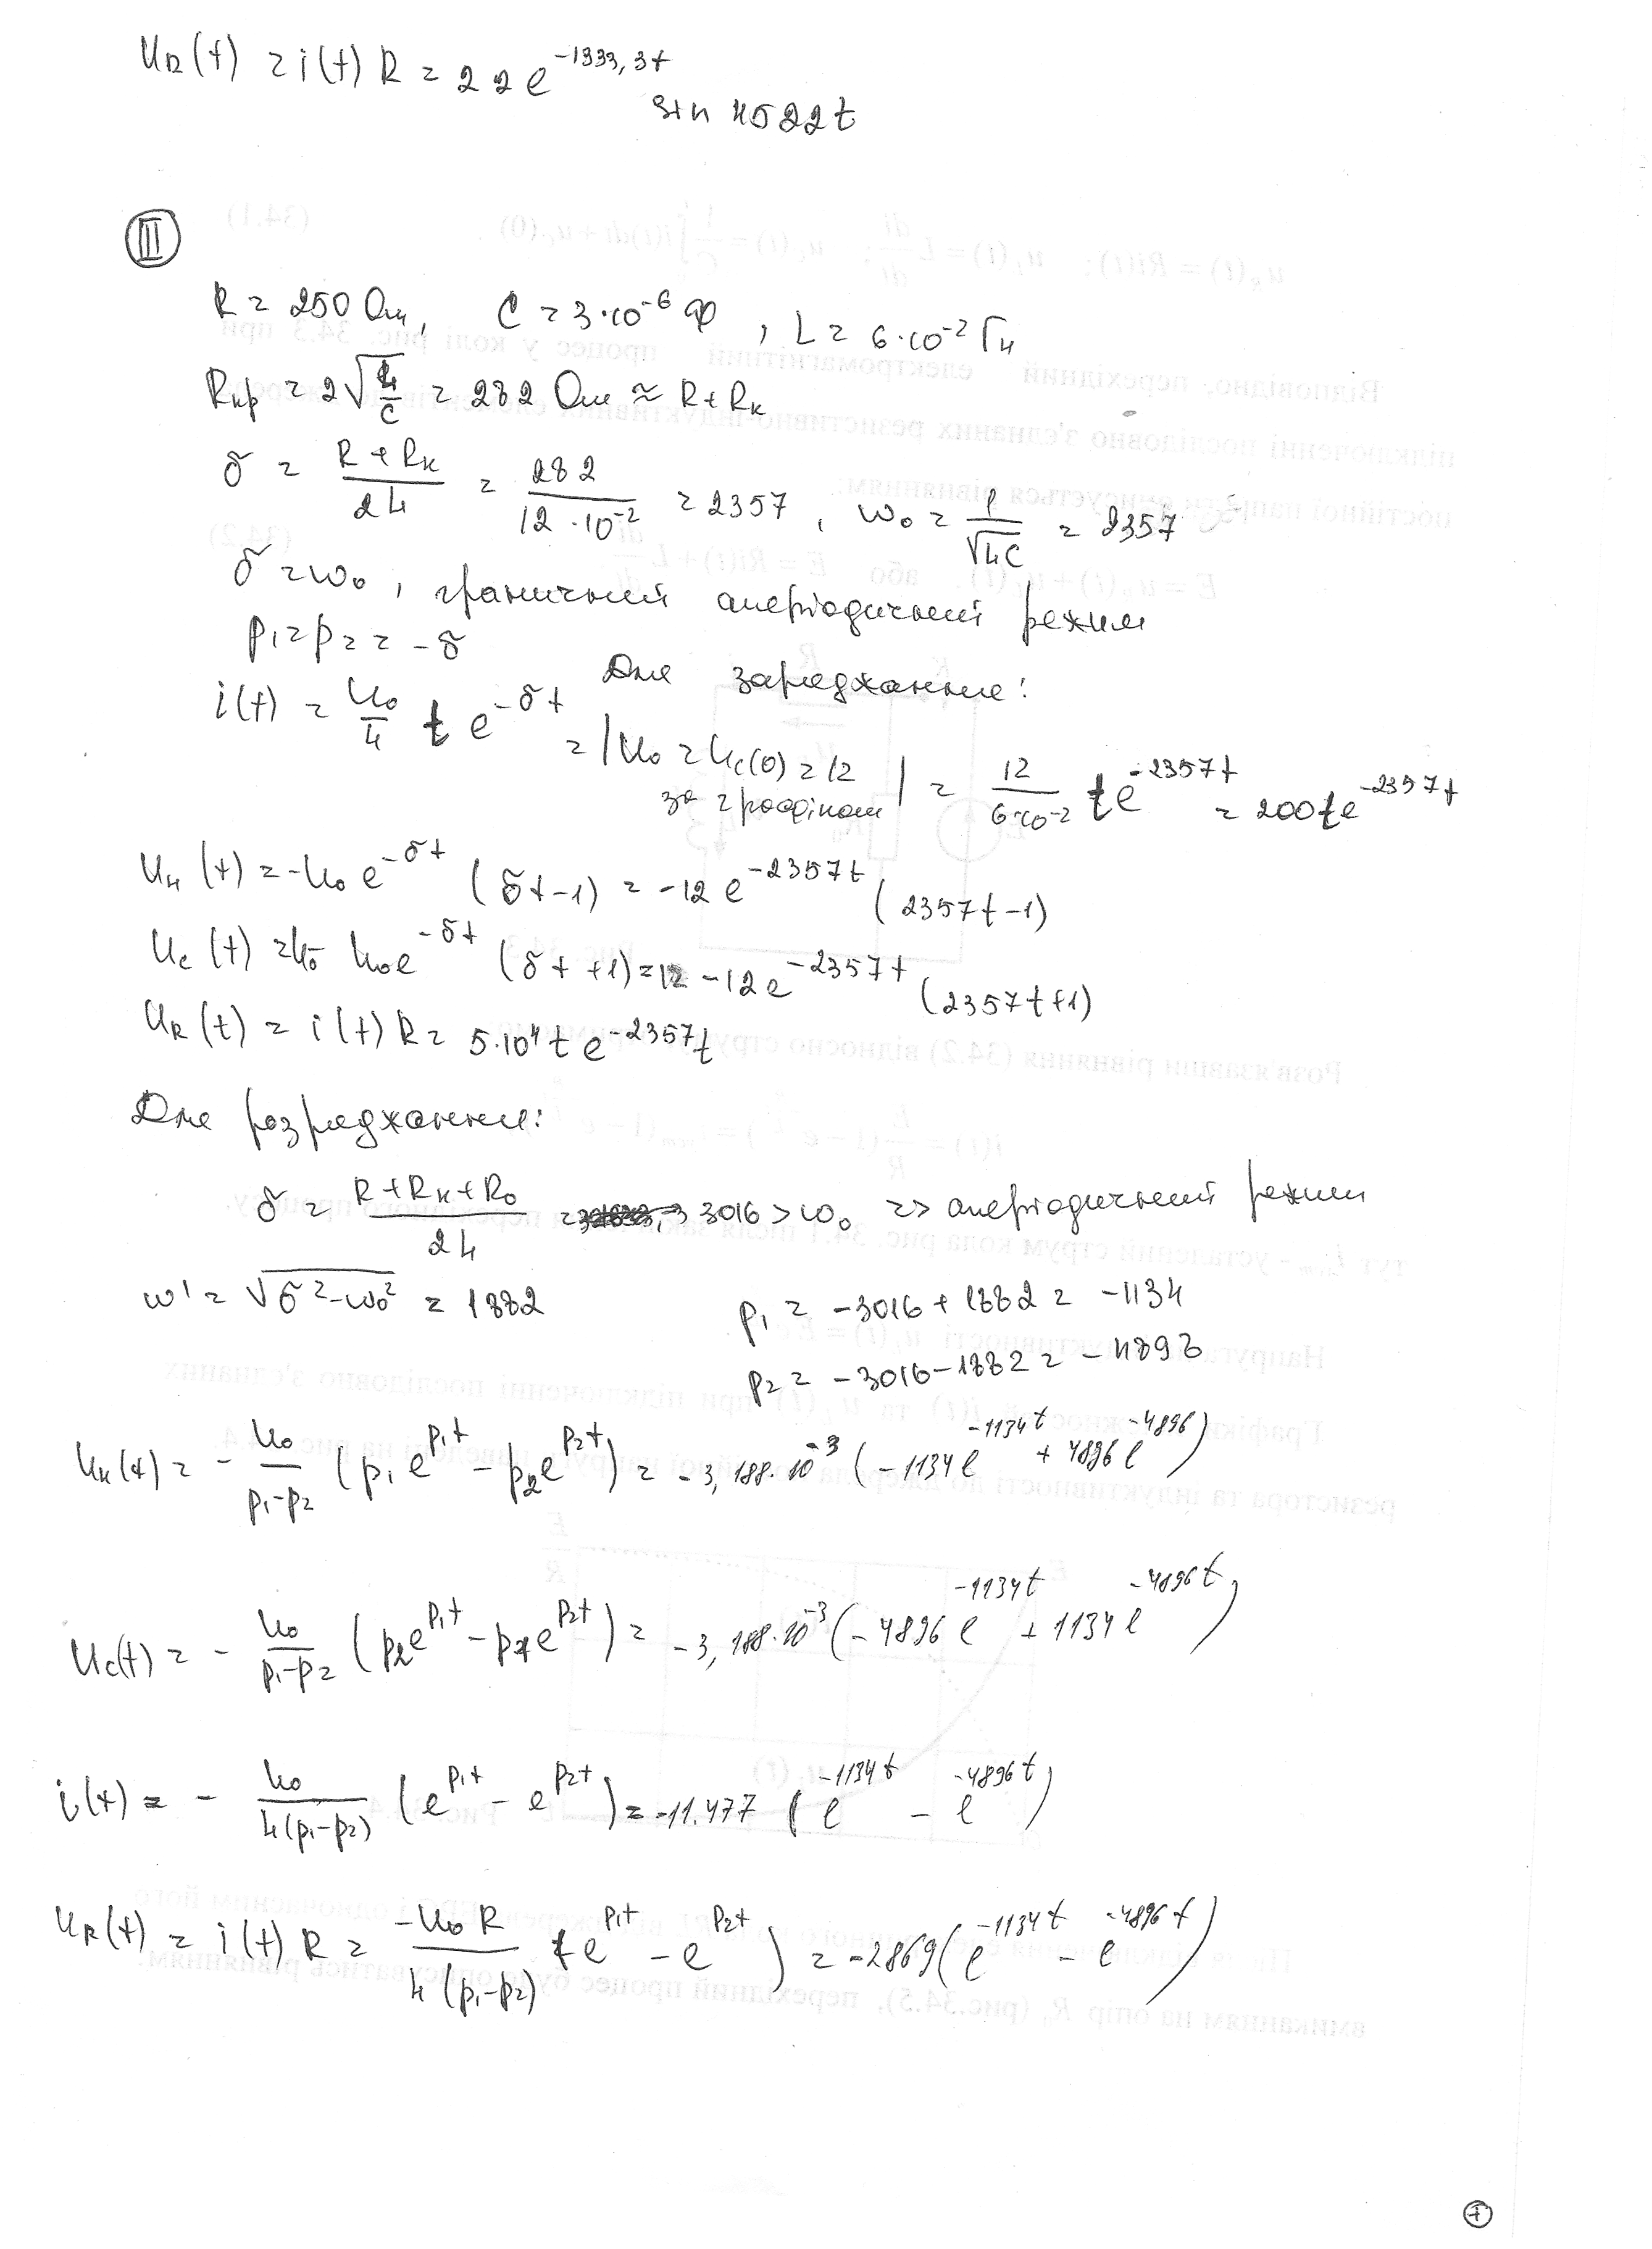 U_R(t) = i(t) R = 22 e^{-1333,3t} sin 4522t
III
R = 250 Ом, C = 3·10^{-6} Ф, L = 6·10^{-2} Гн
R_кр = 2√(L/C) = 282 Ом ≈ R + R_к
δ = (R + R_к)/(2L) = 282/(12·10^{-2}) = 2357, ω_0 = 1/√(LC) = 2357
δ = ω_0, граничний аперіодичний режим
p_1 = p_2 = -δ
Для заряджання:
i(t) = (U_0/L) t e^{-δt} = |U_0 = U_C(0) = 12 за графіком| = 12/(6·10^{-2}) t e^{-2357t} = 200 t e^{-2357t}
U_L(t) = -U_0 e^{-δt} (δt-1) = -12 e^{-2357t} (2357t-1)
U_C(t) = U_0 - U_0 e^{-δt} (δt+1) = 12 - 12 e^{-2357t} (2357t+1)
U_R(t) = i(t) R = 5·10^4 t e^{-2357t}
Для розряджання:
δ = (R + R_к + R_0)/(2L) = 3016 > ω_0 => аперіодичний режим
ω' = √(δ^2 - ω_0^2) = 1882
p_1 = -3016 + 1882 = -1134
p_2 = -3016 - 1882 = -4898
U_L(t) = - U_0/(p_1-p_2) (p_1 e^{p_1t} - p_2 e^{p_2t}) = -3,188·10^{-3} (-1134 e^{-1134t} + 4896 e^{-4896})
U_C(t) = - U_0/(p_1-p_2) (p_2 e^{p_1t} - p_1 e^{p_2t}) = -3,188·10^{-3} (-4896 e^{-1134t} + 1134 e^{-4896t})
i(t) = - U_0/(L(p_1-p_2)) (e^{p_1t} - e^{p_2t}) = -11.477 (e^{-1134t} - e^{-4896t})
U_R(t) = i(t) R = -U_0 R/(L(p_1-p_2)) (e^{p_1t} - e^{p_2t}) = -2869 (e^{-1134t} - e^{-4896t})
7